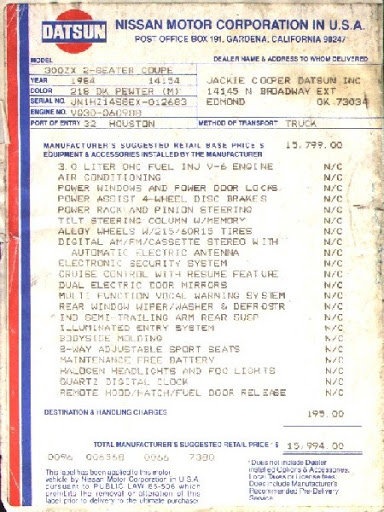 DATSUN
NISSAN MOTOR CORPORATION IN U.S.A.
POST OFFICE BOX 191, GARDENA, CALIFORNIA 90247
MODEL
DEALER NAME & ADDRESS TO WHOM DELIVERED
300ZX 2-SEATER COUPE
YEAR 1984 14154
JACKIE COOPER DATSUN INC
COLOR 218 DK PEWTER (M)
14145 N BROADWAY EXT
SERIAL NO. JN1HZ14S8EX-012683
EDMOND OK.73034
ENGINE NO.
PORT OF ENTRY 32 HOUSTON METHOD OF TRANSPORT TRUCK
MANUFACTURER'S SUGGESTED RETAIL BASE PRICE $ 15,799.00
EQUIPMENT & ACCESSORIES INSTALLED BY THE MANUFACTURER
3.0 LITER OHC FUEL INJ V-6 ENGINE N/C
AIR CONDITIONING N/C
POWER WINDOWS AND POWER DOOR LOCKS N/C
POWER ASSIST 4-WHEEL DISC BRAKES N/C
POWER RACK AND PINION STEERING N/C
TILT STEERING COLUMN W/MEMORY N/C
ALLOY WHEELS W/215/60R15 TIRES N/C
DIGITAL AM/FM/CASSETTE STEREO WITH N/C
AUTOMATIC ELECTRIC ANTENNA N/C
ELECTRONIC SECURITY SYSTEM N/C
CRUISE CONTROL WITH RESUME FEATURE N/C
DUAL ELECTRIC DOOR MIRRORS N/C
MULTI FUNCTION VOCAL WARNING SYSTEM N/C
REAR WINDOW WIPER/WASHER & DEFROSTR N/C
IND SEMI-TRAILING ARM REAR SUSP N/C
ILLUMINATED ENTRY SYSTEM N/C
BODYSIDE MOLDING N/C
8-WAY ADJUSTABLE SPORT SEATS N/C
MAINTENANCE FREE BATTERY N/C
HALOGEN HEADLIGHTS AND FOG LIGHTS N/C
QUARTZ DIGITAL CLOCK N/C
REMOTE HOOD/HATCH/FUEL DOOR RELEASE N/C
DESTINATION & HANDLING CHARGES 195.00
TOTAL MANUFACTURER'S SUGGESTED RETAIL PRICE * $ 15,994.00
0096 006358 0066 7380
This label has been applied to this motor
vehicle by Nissan Motor Corporation in U.S.A.
pursuant to PUBLIC LAW 85-506 which
prohibits the removal or alteration of this
label prior to delivery to the ultimate purchaser.
* Does not include Dealer
Installed Options & Accessories,
Local Taxes or License fees.
Does include Manufacturer's
Recommended Pre-Delivery
Service.